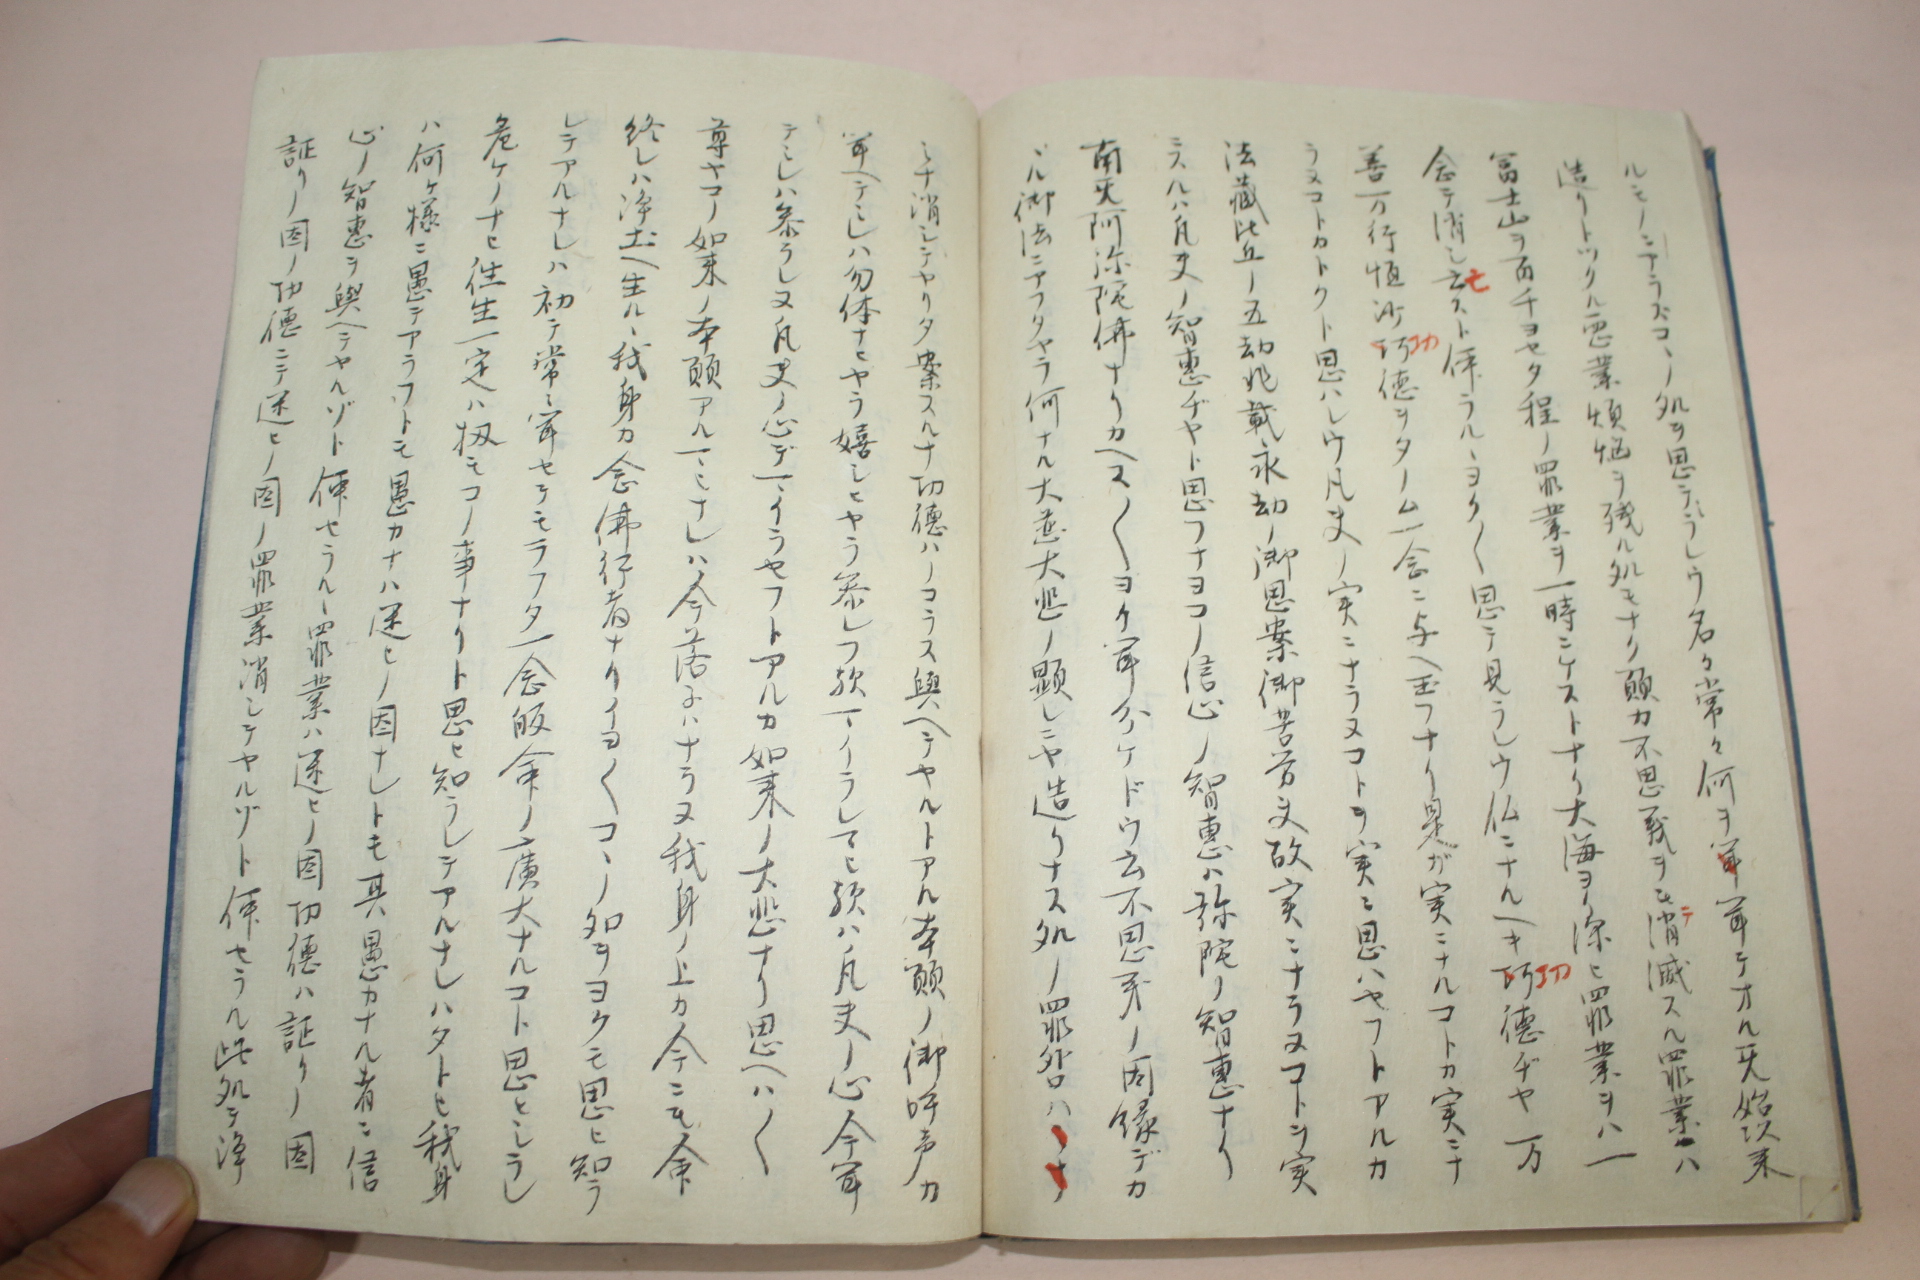 ルモノニテラズコヽノ処ヲ思テミラレウ名々常々何ヲ聞テオル无始以来
造リトツクル悪業煩悩ヲ残ル処モナク願力不思義ヲモテ消滅スル罪業ハ
冨士山ヲ百千ヨセタ程ノ罪業ヲ一時ニケストナリ大海ヨリ深ヒ罪業ヲハ一
念テ消し亡スト仰ラルヽヨク〱思テ見ラレウ仏ニナルヘキ功徳ヂヤ万
善万行恒沙功徳ヲタノム一念ニ与ヘ玉フナリ是ガ実ニナルコトカ実ニナ
ラヌコトカトクト思ハレウ凡夫ノ実ニナラヌコトヲ実ニ思ハセフトアルカ
法藏比丘ノ五劫兆載永劫ノ御思案御苦労又故実ニナラヌコトヲ実
ラスルハ凡夫ノ智恵ヂヤト思フナヨコノ信心ノ智恵ハ弥陀ノ智恵ナリ
南无阿弥陀佛ナリカヘス〱ヨク聞分ケドウ云不思系ノ因縁デカ
ヽル御法ニアフタヤラ何ナル大慈大悲ノ顕レニヤ造リナス処ノ罪咎ハ
ミナ消シテヤリタ案スルナ功德ハノコラス與ヘテヤルトアル本願ノ御呼声カ
聞ヘテミレハ勿体ナヒヤラ嬉しヒヤラ忝しフ欤マイラしマヒ欤ハ凡夫ノ心今聞
テミレハ忝ラし又凡夫ノ心デマイラセフトアルカ如来ノ大悲ナリ思ヘハ〱
尊ヤコノ如来ノ本願アルマミナレハ今落るハナラヌ我身ノ上カ今ニモ命
終レハ浄土ヘ生ルヽ我身カ念佛行者ナクイヨ〱コヽノ処ヲヨクモ思ヒ知ラ
レテアルナレハ初テ常ニ聞セテモラフタ一念皈命ノ廣大ナルコト思ヒシラレ
危ケノナヒ往生一定ハ扨モコノ事ナリト思ヒ知ラレテアルナレハタトヒ我身
ハ何ヶ様ニ愚テアラフトモ愚カナハ迷ヒノ因ナレトモ其愚カナル者ニ信
心ノ智恵ヲ與ヘテヤルゾト仰セラルヽ罪業ハ迷ヒノ因功德ハ証リノ因
証リノ因ノ功德ニテ迷ヒノ因ノ罪業消シテヤルゾト仰セラル此処テ浄